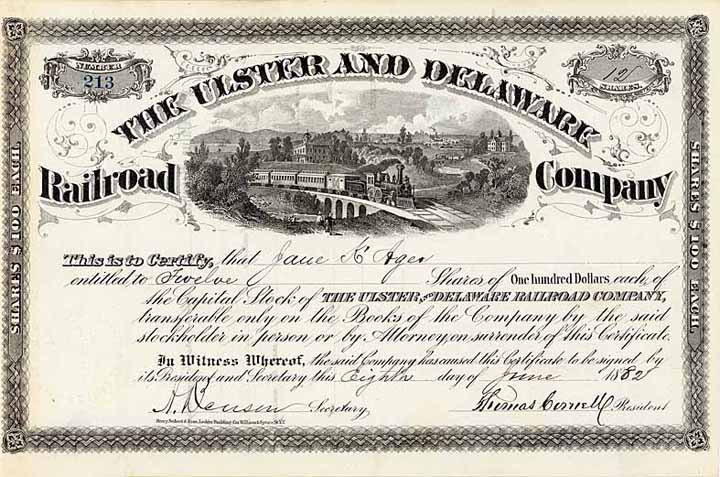 NUMBER
213
12
SHARES.
THE ULSTER AND DELAWARE
Railroad Company
SHARES $100 EACH
SHARES $100 EACH
This is to Certify, that Jane K Ager
entitled to Twelve Shares of One hundred Dollars each, of
the Capital Stock of THE ULSTER AND DELAWARE RAILROAD COMPANY,
transferable only on the Books of the Company by the said
stockholder in person or by Attorney, on surrender of this Certificate.
In Witness Whereof, the said Company has caused this Certificate to be signed by
its President and Secretary this Eighth day of June 1882
Secretary, Thomas Cornell President